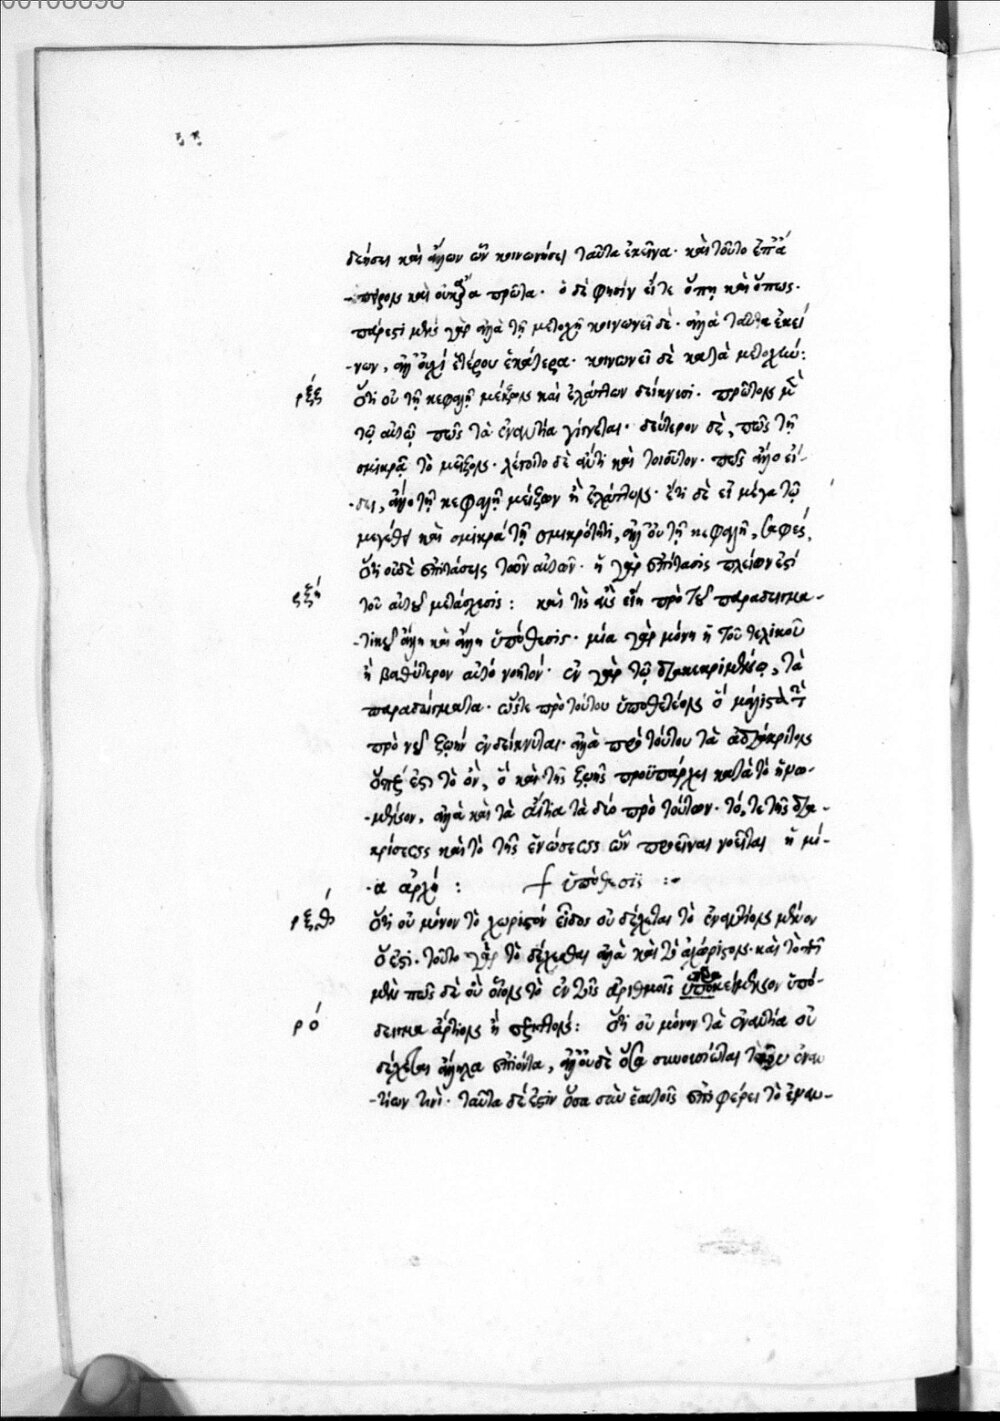 δεήσει καὶ ἄλλων ὧν κοινωνήσει ταῦτα ἐκεῖνα. καὶ τοῦτο ἐπ' ἄ
-πειρον καὶ οὐκ πρῶτα. ὁ δὲ φησὶν εἴτε ὅπῃ καὶ ὅπως.
πάρεστι μὲν γὰρ ἀλλὰ τῇ μετοχῇ κοινωνεῖ δὲ. ἀλλὰ ταῦτα ἐκεί
-νων, ἀλλ' οὐχὶ ἑτέρου ἑκάτερα. κοινωνεῖ δὲ κατὰ μετοχὴν:
ρξζ ὅτι οὐ τῇ κεφαλῇ μεῖζον καὶ ἐλάττων δείκνυσι. πρῶτον μὲν
τῷ αὐτῷ πῶς τὰ ἐναντία γίγνεται. δεύτερον δὲ, πῶς τῇ
σμικρᾷ τὸ μεῖζον. λέγοιτο δὲ αὐτῇ καὶ τοιοῦτον. πῶς ἄλλο εἴ-
-δει, ἄλλο τῇ κεφαλῇ μείζων ἢ ἐλάττων. ἔτι δὲ εἰ μέγα τῷ
μεγέθει καὶ σμικρὰ τῇ σμικρότητι, ἀλλ' οὐ τῇ κεφαλῇ, σαφές,
ὅτι οὐδὲ ἐπιτάσεις τῶν αὐτῶν. ἡ γὰρ ἐπίτασις πλείων ἐστὶ
ρξη τοῦ αὐτοῦ μετάσχεσις: καὶ τίς ἂν εἴη πρὸ τοῦ παραδειγμα-
-τικοῦ ἄλλη καὶ ἄλλη ὑπόθεσις. μία γὰρ μόνη ἡ τοῦ τελικοῦ
ἢ βαθύτερον αὐτὸ νοητόν. ἐν γὰρ τῷ διακεκριμένῳ, τὰ
παραδείγματα. ὥστε πρὸ τούτου ὑποθετέον ὃ μάλιστα
πρὸ νοῦ ζωὴν ἐνδείκνυται. ἀλλὰ πρὸ τούτου τὰ ἀδιάκριτον
ὅπερ ἐστὶ τὸ ὂν, ὃ καὶ τῆς ζωῆς προϋπάρχει κατὰ τὸ ἡνω-
-μένον, ἀλλὰ καὶ τὰ αἴτια τὰ δύο πρὸ τούτων. τό, τε τῆς δια-
κρίσεως καὶ τὸ τῆς ἑνώσεως ὧν προεῖναι νοεῖται ἡ μί-
-α ἀρχὴ: ὑπόθεσις :-
ρξθ ὅτι οὐ μόνον τὸ χωριστὸν εἶδος οὐ δέχεται τὸ ἐναντίον μένον
ὅ ἐστι. τοῦτο γὰρ τὸ δέχεσθαι ἀλλὰ καὶ τὸ ἀχώριστον. καὶ τὸ
μὲν πῶς δὲ οὐ οἷον τὸ ἐν τοῖς ἀριθμοῖς ὑποκείμενον ὑπό-
ρο δειγμα ἄρτιον ἢ περιττόν: ὅτι οὐ μόνον τὰ ἐναντία οὐ
δέχεται ἄλληλα ἐπιόντα, ἀλλ' οὐδὲ ὅσα συνουσίωται ἐναν
-τίων τινὶ. ταῦτα δέ ἐστιν ὅσα σὺν ἑαυτοῖς ἐπιφέρει τὸ ἐναν-